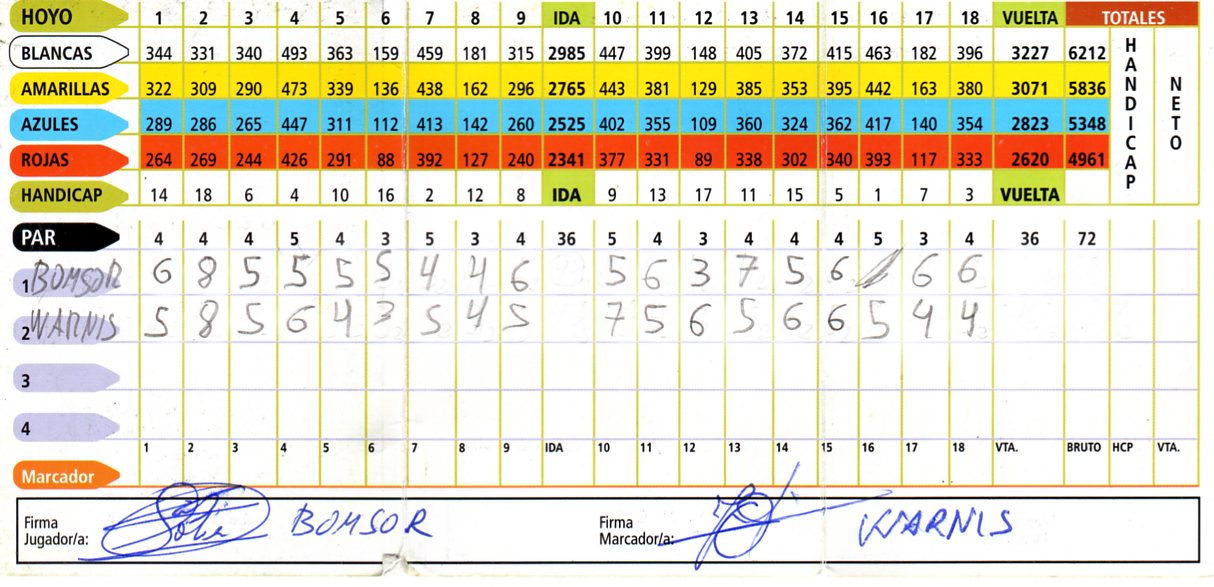 HOYO 1 2 3 4 5 6 7 8 9 IDA 10 11 12 13 14 15 16 17 18 VUELTA TOTALES
BLANCAS 344 331 340 493 363 159 459 181 315 2985 447 399 148 405 372 415 463 182 396 3227 6212 HANDICAP NETO
AMARILLAS 322 309 290 473 339 136 438 162 296 2765 443 381 129 385 353 395 442 163 380 3071 5836
AZULES 289 286 265 447 311 112 413 142 260 2525 402 355 109 360 324 362 417 140 354 2823 5348
ROJAS 264 269 244 426 291 88 392 127 240 2341 377 331 89 338 302 340 393 117 333 2620 4961
HANDICAP 14 18 6 4 10 16 2 12 8 IDA 9 13 17 11 15 5 1 7 3 VUELTA
PAR 4 4 4 5 4 3 5 3 4 36 5 4 3 4 4 4 5 3 4 36 72
1 BOMSOR 6 8 5 5 5 5 4 4 6 5 6 3 7 5 6 6 6
2 WARNIS 5 8 5 6 4 3 5 4 5 7 5 6 5 6 6 5 4 4
3
4
1 2 3 4 5 6 7 8 9 IDA 10 11 12 13 14 15 16 17 18 VTA. BRUTO HCP VTA.
Marcador
Firma Jugador/a: BOMSOR Firma Marcador/a: WARNIS